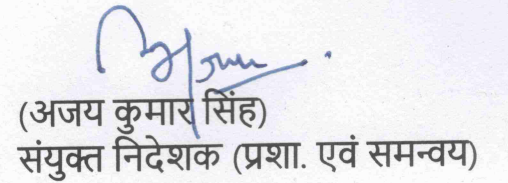 (अजय कुमार सिंह)
संयुक्त निदेशक (प्रशा. एवं समन्वय)